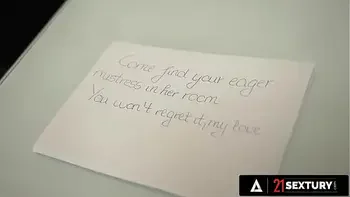 Come find your eager
mistress in her room
You won't regret it, my love
21SEXTURY